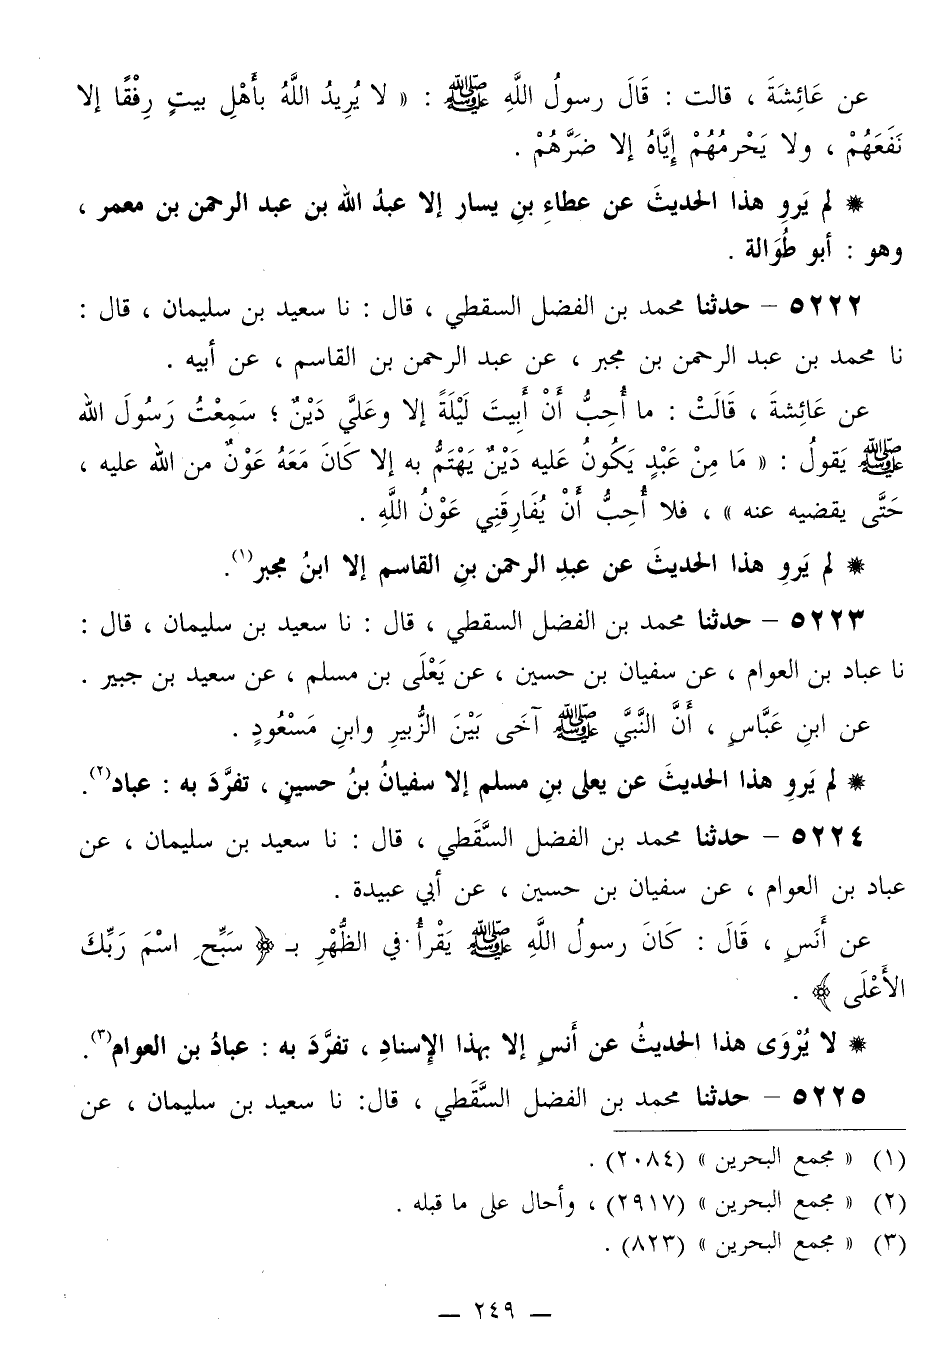 عن عَائِشَةَ ، قالت : قَالَ رسولُ اللَّهِ ﷺ : « لا يُرِيدُ اللَّهُ بأَهْلِ بيتٍ رِفْقًا إلا
نَفَعَهُمْ ، ولا يَحْرِمُهُمْ إيَّاهُ إلا ضَرَّهُمْ .
* لم يَروِ هذا الحديثَ عن عطاءِ بنِ يسار إلا عبدُ الله بن عبد الرحمن بن معمر ،
وهو : أبو طُوَالة .
٥٢٢٢ – حدثنا محمد بن الفضل السقطي ، قال : نا سعيد بن سليمان ، قال :
نا محمد بن عبد الرحمن بن مجبر ، عن عبد الرحمن بن القاسم ، عن أبيه .
عن عَائِشَةَ ، قَالَتْ : ما أُحِبُّ أَنْ أَبِيتَ لَيْلَةً إلا وعَلَيَّ دَيْنٌ ؛ سَمِعْتُ رَسُولَ الله
ﷺ يَقولُ : « مَا مِنْ عَبْدٍ يَكُونُ عَليه دَيْنٌ يَهْتَمُّ به إلا كَانَ مَعَهُ عَوْنٌ من الله عليه ،
حَتَّى يقضيه عنه » ، فلا أُحِبُّ أَنْ يُفَارِقَنِي عَوْنُ اللَّهِ .
* لم يَروِ هذا الحديثَ عن عبدِ الرحمن بنِ القاسم إلا ابنُ مجبر(١).
٥٢٢٣ – حدثنا محمد بن الفضل السقطي ، قال : نا سعيد بن سليمان ، قال :
نا عباد بن العوام ، عن سفيان بن حسين ، عن يَعْلَى بن مسلم ، عن سعيد بن جبير .
عن ابنِ عَبَّاسٍ ، أَنَّ النَّبيَّ ﷺ آخَى بَيْنَ الزُّبيرِ وابنِ مَسْعُودٍ .
* لم يَروِ هذا الحديثَ عن يعلى بنِ مسلم إلا سفيانُ بنُ حسينٍ ، تفرَّدَ به : عباد(٢).
٥٢٢٤ – حدثنا محمد بن الفضل السَّقَطي ، قال : نا سعيد بن سليمان ، عن
عباد بن العوام ، عن سفيان بن حسين ، عن أبي عبيدة .
عن أَنَسٍ ، قَالَ : كَانَ رسولُ اللَّهِ ﷺ يَقْرأُ في الظُّهْرِ بـ ﴿ سَبِّحِ اسْمَ رَبِّكَ
الأَعْلَى ﴾ .
* لا يُرْوَى هذا الحديثُ عن أَنسٍ إلا بهذا الإسنادِ ، تفرَّدَ به : عبادُ بن العوام(٣).
٥٢٢٥ – حدثنا محمد بن الفضل السَّقَطي ، قال: نا سعيد بن سليمان ، عن
(١) « مجمع البحرين » (٢٠٨٤) .
(٢) « مجمع البحرين » (٢٩١٧) ، وأحال على ما قبله .
(٣) « مجمع البحرين » (٨٢٣) .
— ٢٤٩ —